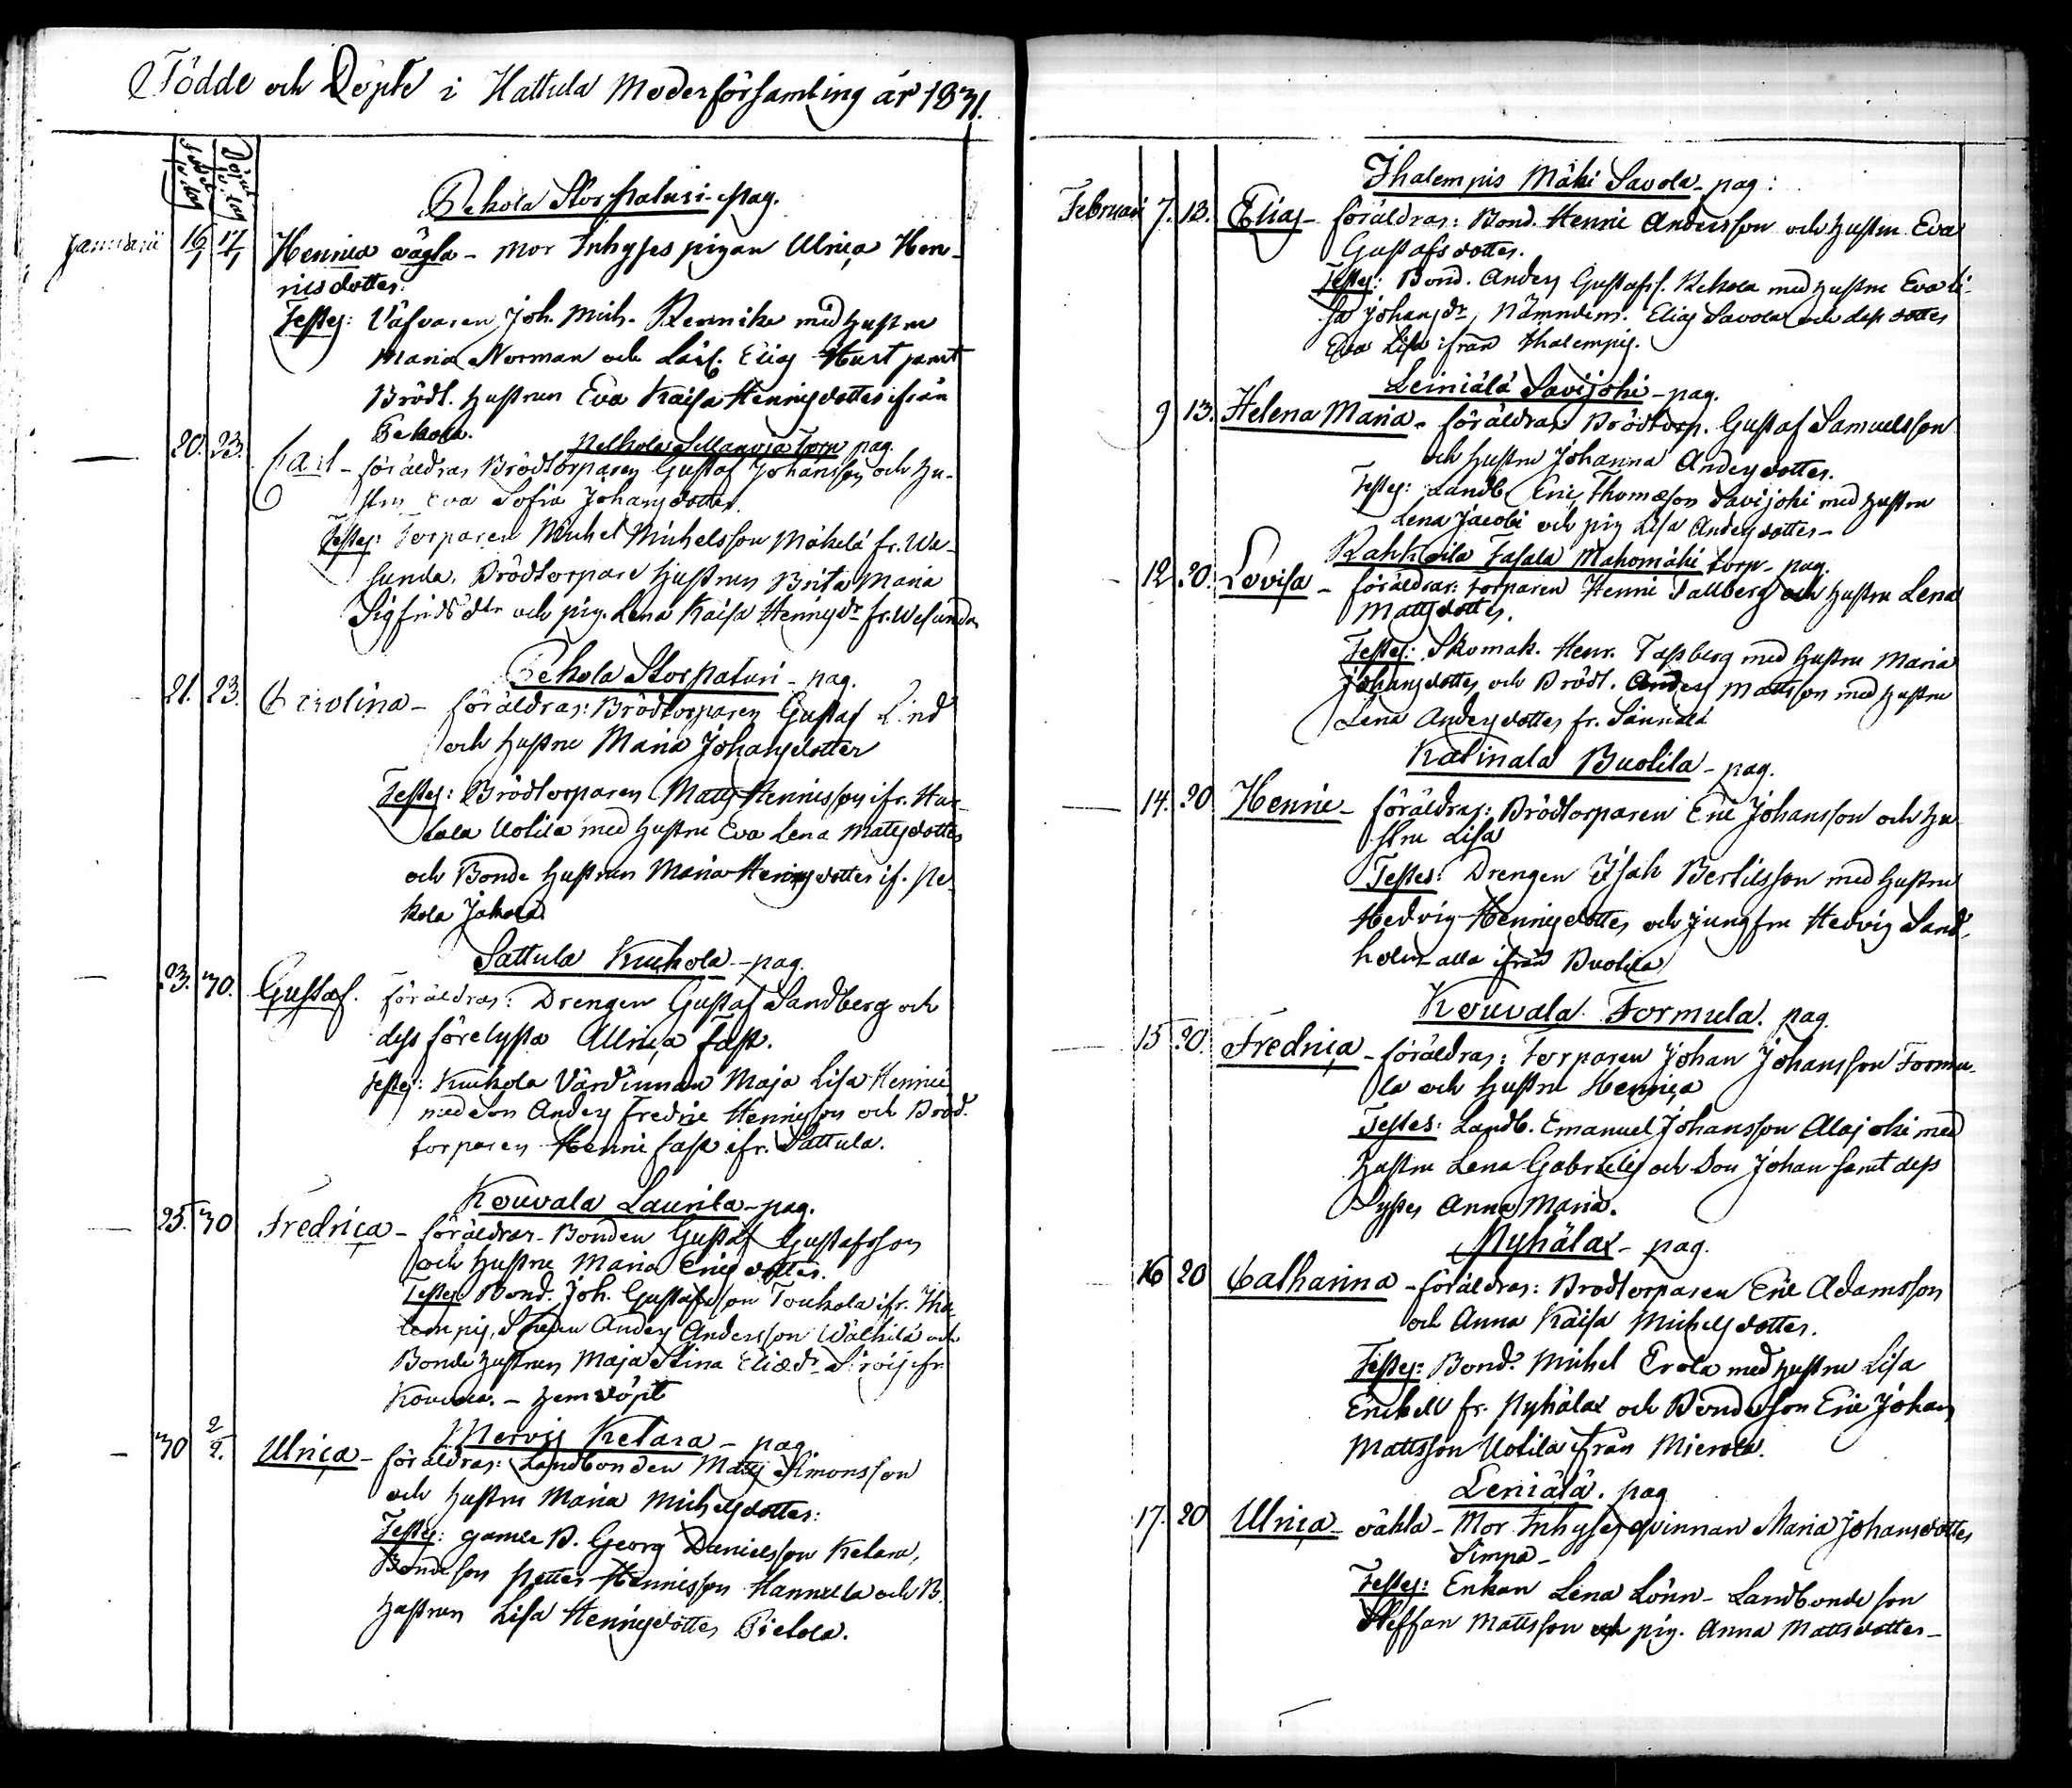 Födde och Döpte i Hattula Moderförsamling år 1831.
Född
Döpt
Pekola Storpaturi pag.
Januarii 16/1 17/1 Henrica oägta - Mor Inhyses pigan Ulrica Hen-
ricsdotter.
Testes: Väfvaren Joh. Mich. Rennike med hustru
Maria Norman och Elias Hurt samt
Brödt. hustrun Eva Kaisa Henricsdotter ifrån
Pekola.
torp pag.
20. 23. Carl - föräldrar Brödtorparen Gustaf Johansson och hu-
stru Eva Sofia Johansdotter.
Testes: Torparen Michel Michelsson Mäkelä fr. We-
sunda, Brödtorpare hustrun Brita Maria
Sigfrids dtr och pig. Lena Kaisa Henricsdr fr. Wesunda
Pekola Storpaturi - pag.
21. 23. Carolina - föräldrar: Brödtorparen Gustaf Lind
och hustru Maria Johansdotter
Testes: Brödtorparen Matts Henricsson ifr. Hur-
tala Uotila med hustru Eva Lena Mattsdotter
och Bonde hustrun Maria Henricsdotter if. Pe-
kola Jakola
Sattula Kuckola - pag.
23. 30. Gustaf. föräldrar: Drengen Gustaf Sandberg och
dess förelysta Ulrica Fast.
Testes: Kuckola Värdinnan Maja Lisa Henrici
med son Anders Fredric Henricsson och Bröd-
torparen Henric Fast ifr. Sattula.
Kouvala Laurila - pag.
25. 30 Fredrica - föräldrar - Bonden Gustaf Gustafsson
och hustru Maria Ericsdotter.
Testes: Bond. Joh. Gustafsson Toukola ifr. Iha-
lempis, Anders Andersson Wälkilä och
Bonde hustrun Maja Stina Eliædr Sirois fr
Kouvala. - hemdöpt
Mervis Ketara - pag.
30 2/2. Ulrica - föräldrar: Landbonden Matts Simonsson
och hustru Maria Michelsdotter:
Testes: gamle B. Georg Danielsson Ketara,
Bondeson Petter Henricsson Hannula och B.
hustrun Lisa Henricsdotter Pietola.
Ihalempis Mäki Savola - pag:
Februari 7. 13. Elias - föräldrar: Bond. Henric Andersson och hustru Eva
Gustafsdotter.
Testes: Bond. Anders Gustafss. Rekola med hustru Eva Li-
sa Johansdr, Nämndem. Elias Savola och dess dotter
Eva Lisa ifrån Ihalempis.
Leiniälä Savijoki - pag.
9 13. Helena Maria - föräldrar Brödtorp. Gustaf Samuelsson
och hustru Johanna Andersdotter.
Testes: Landb. Eric Thomasson Savijoki med hustru
Lena Jacobi och pig Lisa Andersdotter -
Rahkoila Fasala Mahomäki torp - pag.
12 20. Lovisa - föräldrar: torparen Henric Tallberg och hustru Lena
Mattsdotter.
Testes: Skomak. Henr. Tassberg med hustru Maria
Johansdotter och Brödt. Anders Mattsson med hustru
Lena Andersdotter fr. Sannala
Katinala Buotila - pag.
14. 20 Henric - föräldrar: Brödtorparen Eric Johansson och hu-
stru Lisa
Testes: Drengen Isak Bertilsson med hustru
Hedvig Henricsdotter och Jungfru Hedvig Sand-
holm alla ifrån Buotila
Kouvala Formula. pag.
15 20. Fredrica - föräldrar: torparen Johan Johansson Formu-
la och hustru Henrica
Testes: Landb. Emanuel Johansson Alajoki med
hustru Lena Gabrielis och Son Johan samt dess
Syster Anna Maria.
Nyhälax - pag.
16 20 Catharina - föräldrar: Brodtorparen Eric Adamsson
och Anna Kaisa Michelsdotter.
Testes: Bond. Michel Erola med hustru Lisa
Enckell fr. Nyhälax och Bondeson Eric Johan
Mattsson Uotila ifrån Mierola.
Leniälä. pag
17. 20 Ulrica - oäkta - Mor Inhyses qvinnan Maria Johansdotter
Simpa -
Testes: Enkan Lena Lönn - Landbonde son
Steffan Mattsson och pig. Anna Mattsdotter -